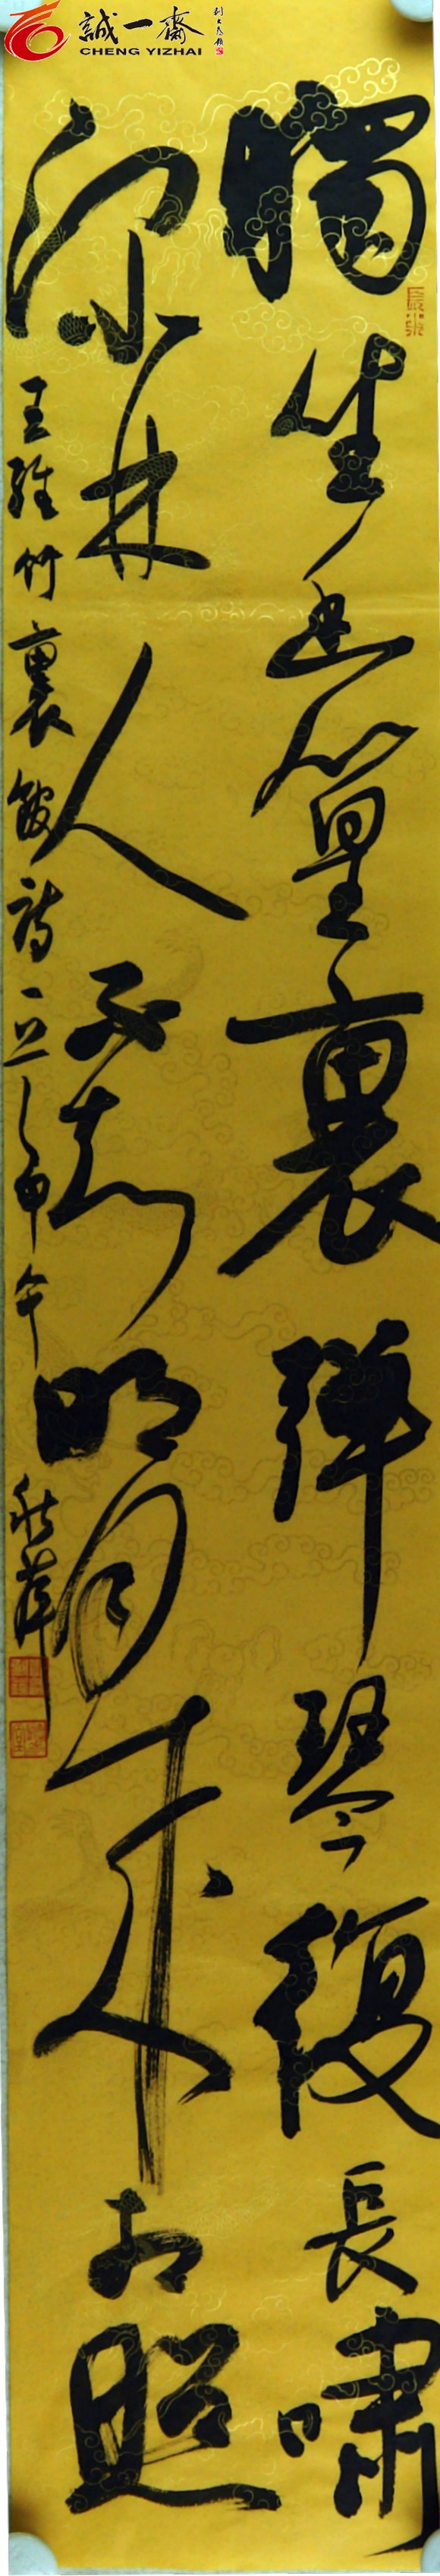 誠一齋
CHENG YIZHAI
獨坐幽篁裏彈琴復長嘯
深林人不知明月來相照
王維竹裏館詩一首甲午